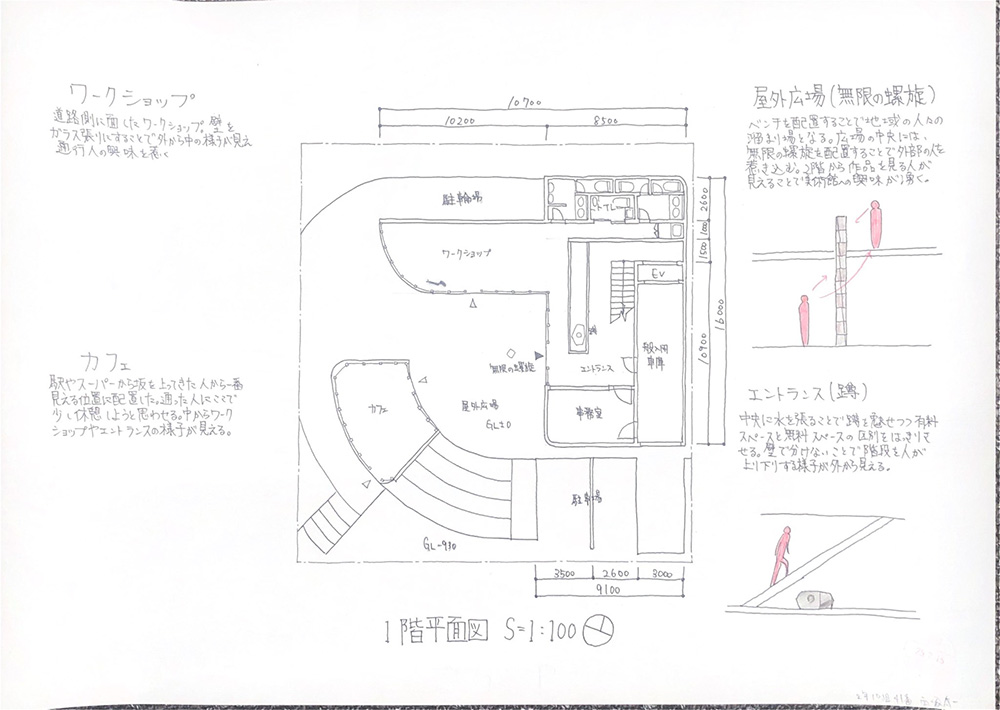 ワークショップ
道路側に面したワークショップ。壁を
ガラス張りにすることで外から中の様子が見え
通行人の興味を惹く
カフェ
駅やスーパーから坂を上ってきた人から一番
見える位置に配置した。通った人にここで
少し休憩しようと思わせる。中からワーク
ショップやエントランスの様子が見える。
10700
10200
8500
駐輪場
TL
ワークショップ
EV
2600
1000
1500
10900
16000
無限の螺旋
エントランス
搬入用
車庫
カフェ
屋外広場
GL±0
事務室
駐車場
GL-980
3500
2600
3000
9100
1階平面図 S=1:100
屋外広場(無限の螺旋)
ベンチを配置することで地域の人々の
溜まり場となる。広場の中央には、
無限の螺旋を配置することで外部の人を
惹き込む。2階から作品を見る人が
見えることで美術館への興味が湧く。
エントランス(蹲)
中央に水を張ることで蹲を魅せつつ有料
スペースと無料スペースの区別をはっきりさ
せる。壁で分けないことで階段を人が
上り下りする様子が外から見える。